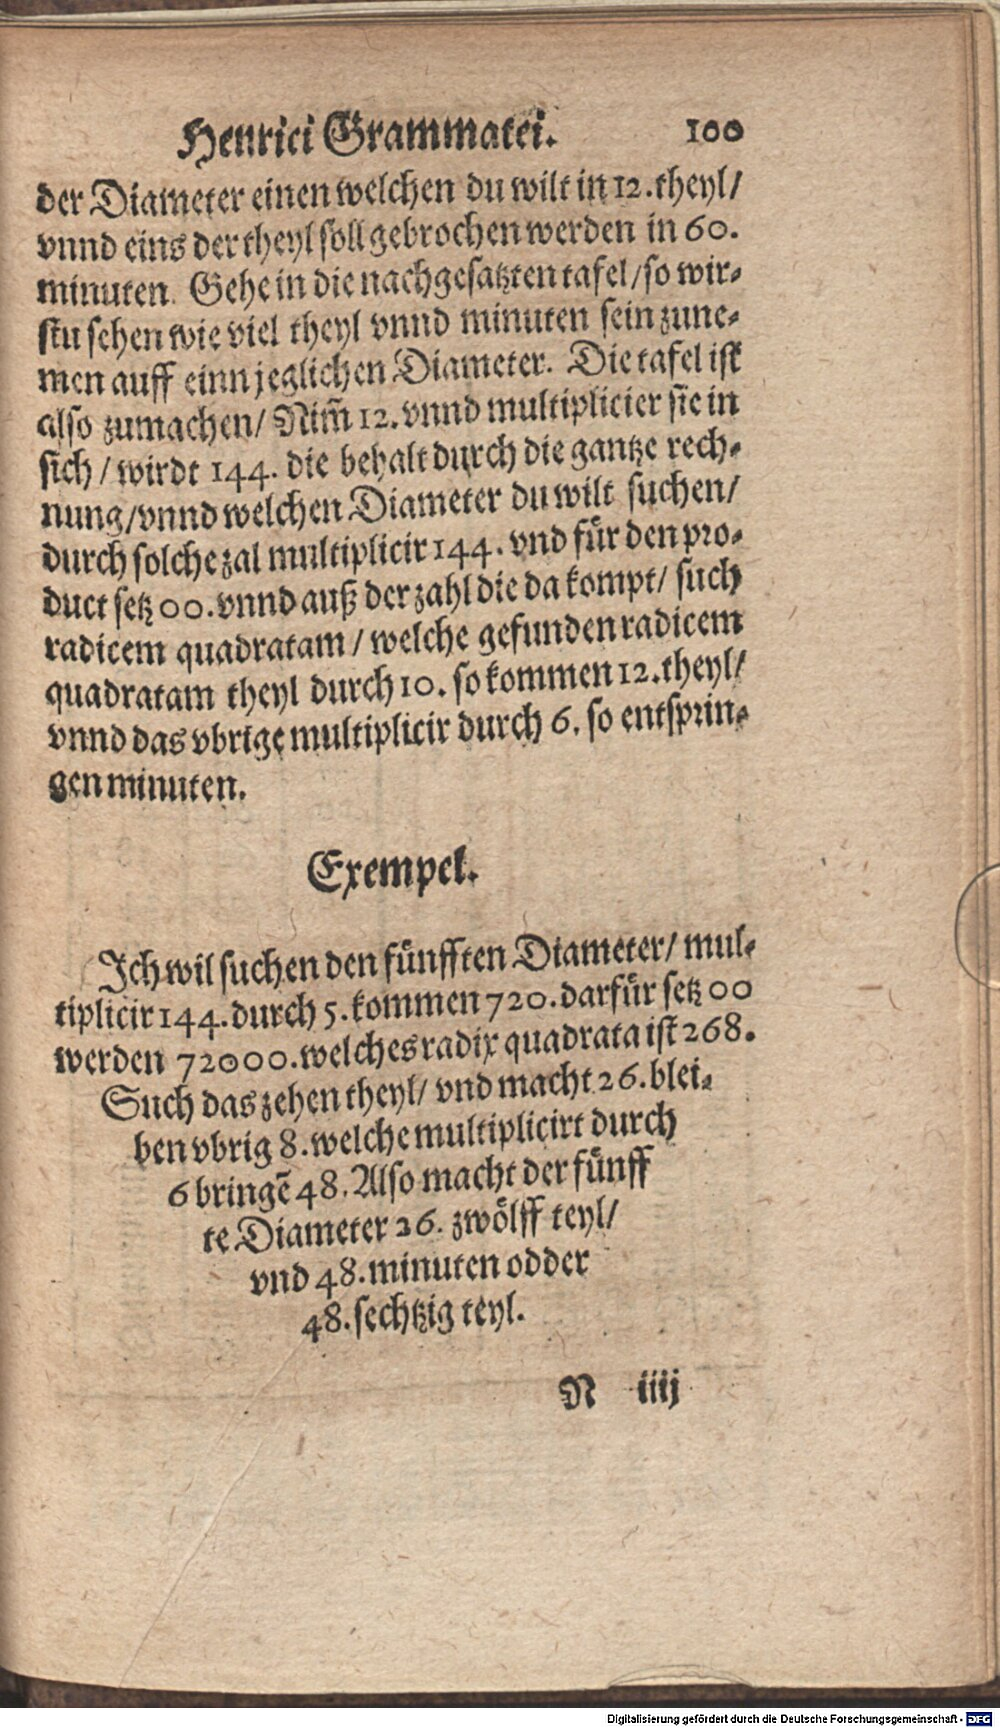 Henrici Grammatei. 100
der Diameter einen welchen du wilt in 12. theyl/
vnnd eins der theyl soll gebrochen werden in 60.
minuten. Gehe in die nachgesatzten tafel/ so wir-
stu sehen wie viel theyl vnnd minuten sein zune-
men auff einn jeglichen Diameter. Die tafel ist
also zumachen/ Nim̃ 12. vnnd multiplicier sie in
sich/ wirdt 144. die behalt durch die gantze rech-
nung/ vnnd welchen Diameter du wilt suchen/
durch solche zal multiplicir 144. vnd für den pro-
duct setz 00. vnnd auß der zahl die da kompt/ such
radicem quadratam/ welche gefunden radicem
quadratam theyl durch 10. so kommen 12. theyl/
vnnd das vbrige multiplicir durch 6. so entsprin-
gen minuten.
Exempel.
Ich wil suchen den fünfften Diameter/ mul-
tiplicir 144. durch 5. kommen 720. darfür setz 00
werden 72000. welches radix quadrata ist 268.
Such das zehen theyl/ vnd macht 26. blei-
ben vbrig 8. welche multiplicirt durch
6 bringẽ 48. Also macht der fünff
te Diameter 26. zwölff teyl/
vnd 48. minuten odder
48. sechtzig teyl.
N iiij
Digitalisierung gefördert durch die Deutsche Forschungsgemeinschaft - DFG